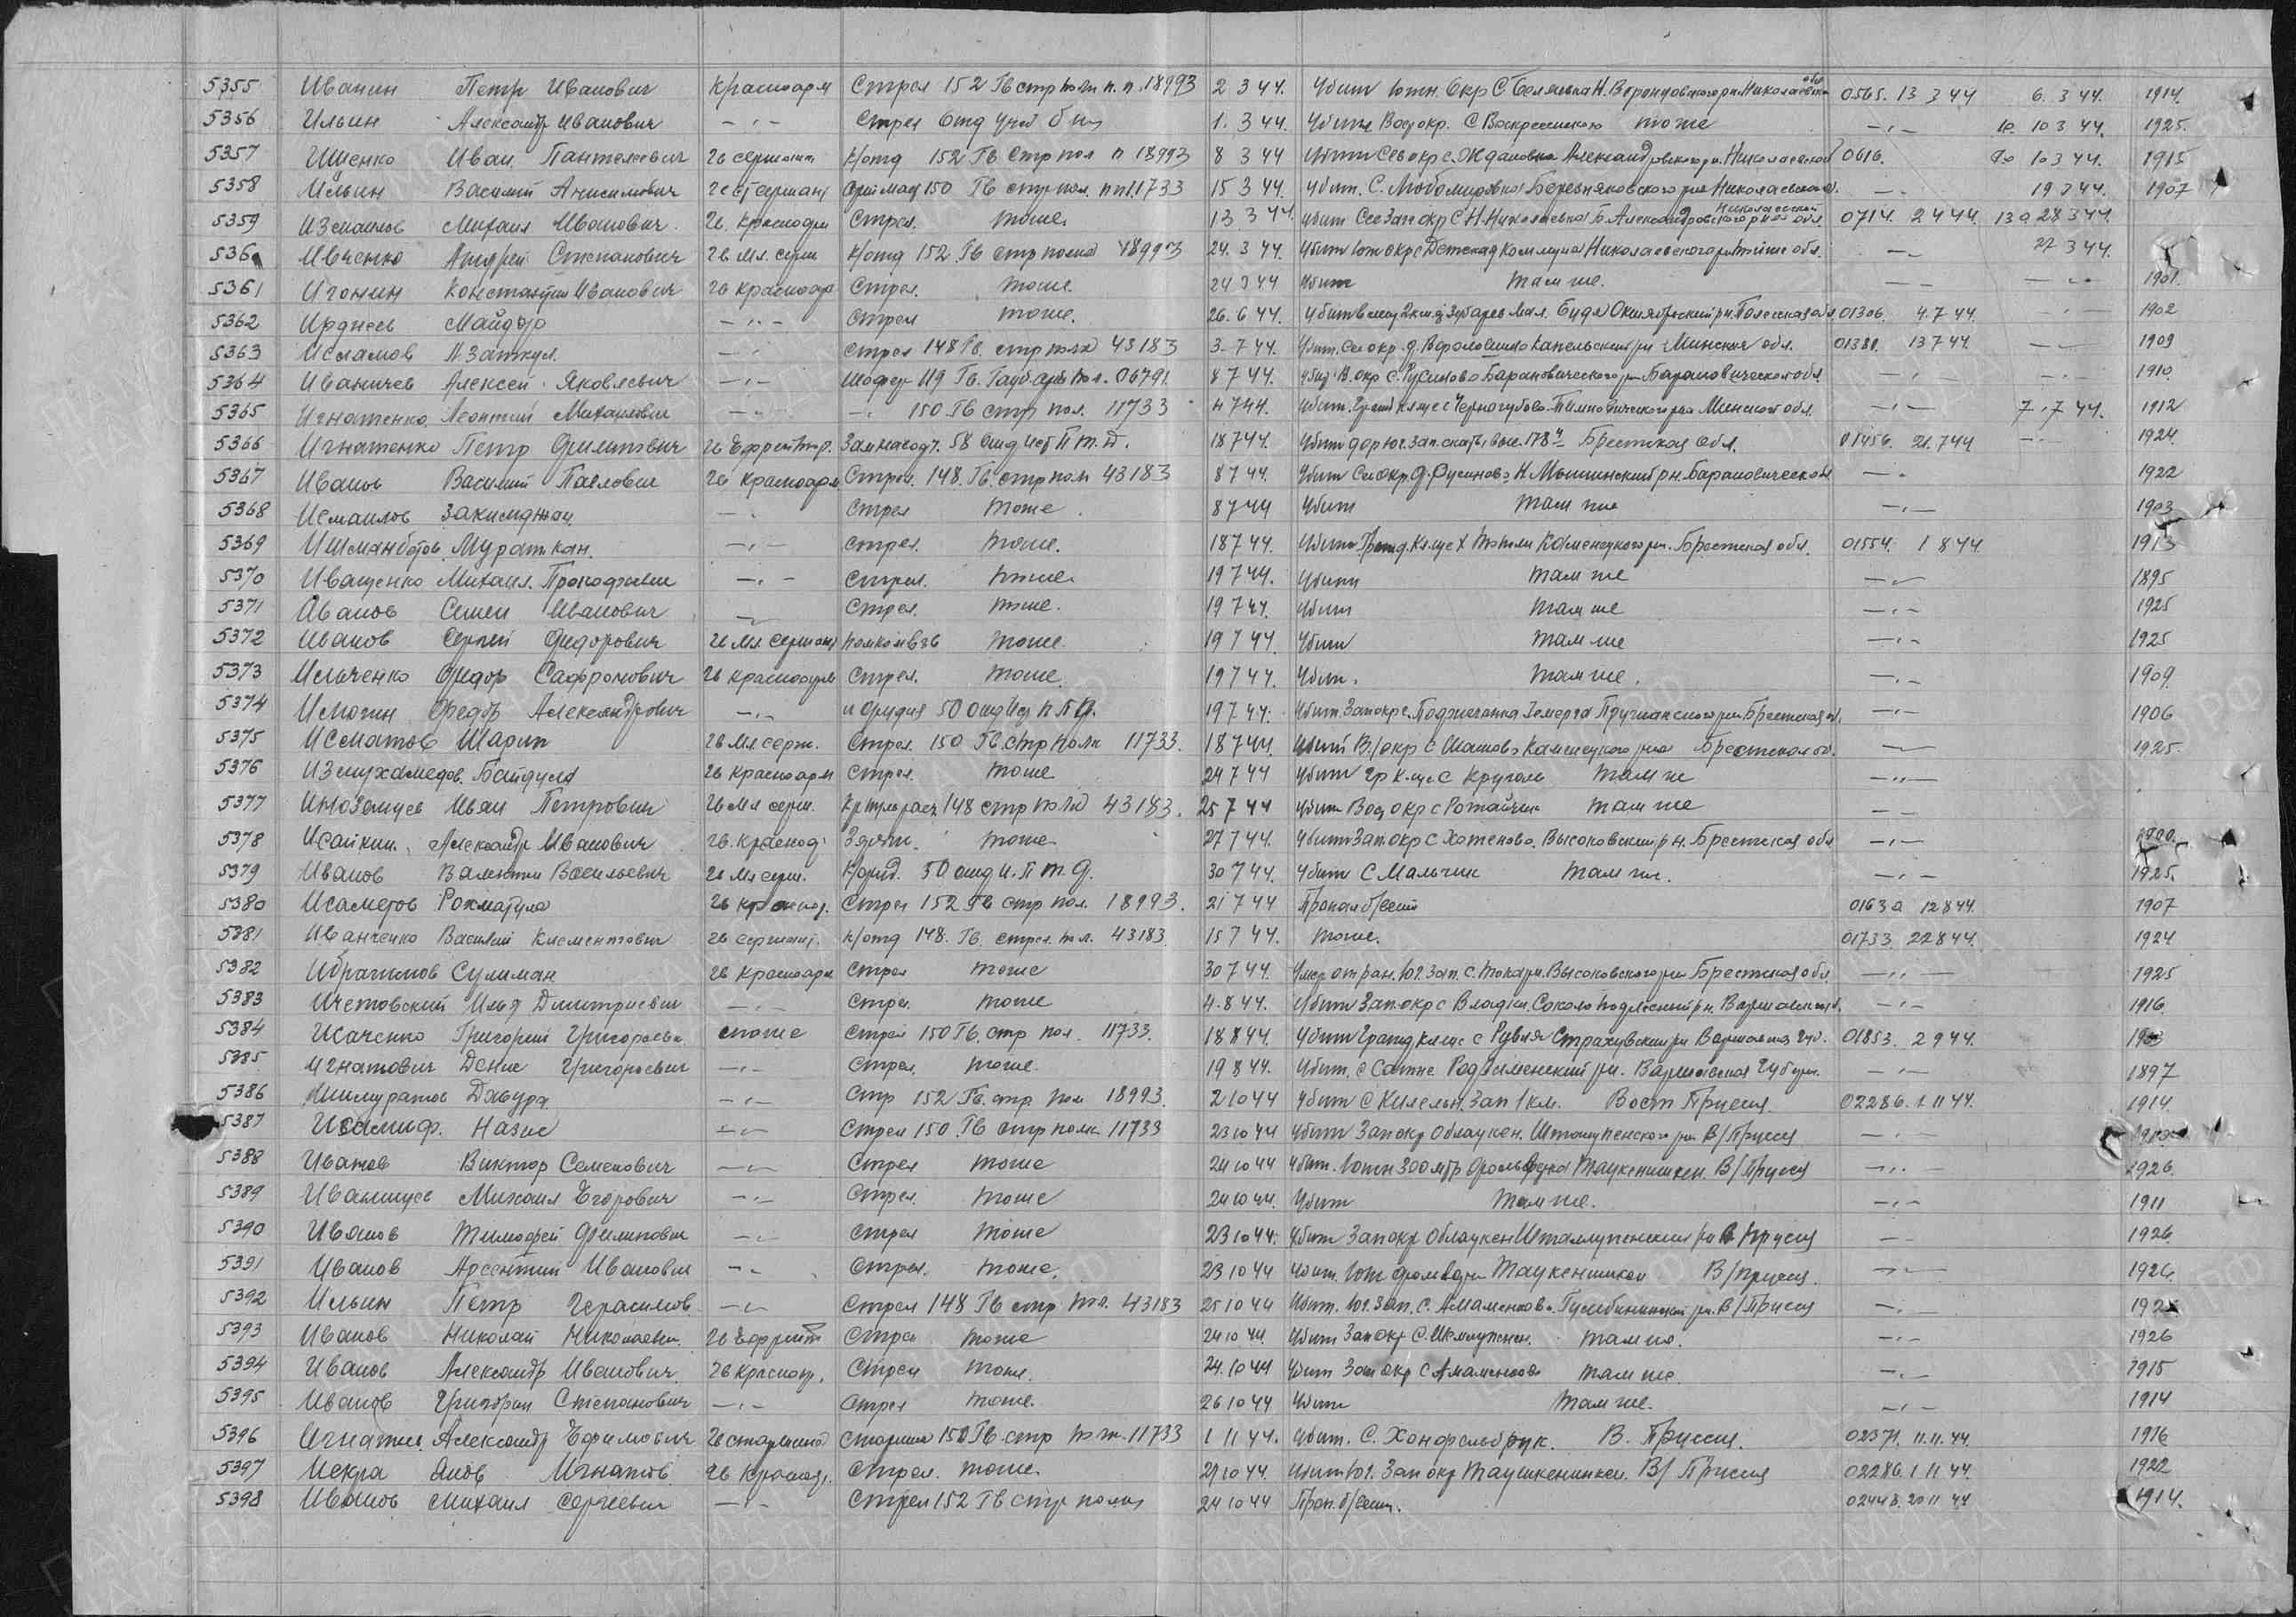 5355 Иванин Петр Иванович Красноарм Стрел 152 Гв стр полк п.п. 18993 2 3 44. Убит южн. окр С Белявка Н. Воронцовского рн. Николаевская обл 0565. 13 3 44 6. 3 44. 1914.
5356 Ильин Александр Иванович —"— Стрел отд учеб б на 1. 3 44. Убит Вост окр. С Воскресенское тоже —"— 10 3 44. 1925.
5357 Ищенко Иван Пантелеевич Гв сержант К/отд 152 Гв Стр пол п 18993 8 3 44 Убит Сев окр с. Ждановка Александровского рн. Николаевской 0616. 10 3 44. 1915
5358 Ильин Василий Анисимович Гв ст сержант 150 Гв стр пол. пп. 11733 15 3 44. Убит. С. Любомировка Березняковского рна Николаевской о. —"— 19 3 44. 1907
5359 Измаилов Михаил Иванович Гв. Красноарм Стрел. тоже. 13 3 44. Убит Сев Зап окр С Н. Николаевка Б. Александровского рна Николаевской обл. 0714. 2 4 44. 28 3 44.
5360 Ивченко Андрей Степанович Гв Мл. серж К/отд 152 Гв стр полка 18993 24. 3 44. Убит Южн окр с Николаевского рн обл. —"— 22 3 44.
5361 Игонин Константин Иванович Гв Красноар Стрел. тоже 24 3 44 Убит там же. —"— —"— 1901.
5362 Ирднеев Майдар —"— Стрел тоже. 26. 6 44. Убит 2 км Октябрьский рн. Полесская обл 01306. 4. 7 44. —"— 1902
5363 Исламов —"— Стрел 148 Гв. стр полк 43183 3. 7 44. Убит. Сев окр. д. Минская обл. 01380. 13 7 44. —"— 1909
5364 Иваничев Алексей Яковлевич —"— Шофер 119 Гв. Гауб арт пол. 06791 8 7 44. Убит В. окр С. Русиново Барановического рн Барановической обл —"— —"— 1910.
5365 Игнатенко Леонтий Михайлович —"— —"— 150 Гв стр пол. 11733 4 7 44. Убит. Гражд кл-ще с Черногубово Минской обл. —"— 7. 7 44. 1912
5366 Игнатенко Петр Филиппович Гв Ефрейтор. Зам навод. 58 отд ист П т. д. 18 7 44. Убит Юг. зап. скаты выс. 178 Брестская обл. 01456. 21. 7 44 —"— 1924.
5367 Иванов Василий Павлович Гв Красноарм Стрел. 148 Гв. стр полк 43183 8 7 44. Убит Сев окр. д. Русиново Н. Мышинский рн. Барановической —"— 1922
5368 Исмаилов Закимджан —"— Стрел тоже 8 7 44 Убит там же —"— 1903
5369 Ишманбетов Мураткан. —"— Стрел. тоже. 18 7 44. Убит Гражд. кл-ще х Тополи Каменецкого рн. Брестская обл. 01554. 1 8 44. 1913
5370 Иващенко Михаил Прокофьевич —"— Стрел. тоже. 19 7 44. Убит там же —"— 1895
5371 Иванов Семен Иванович —"— Стрел. тоже. 19 7 44. Убит там же —"— 1925
5372 Иванов Сергей Федорович Гв Мл. сержант помкомвзв тоже. 19 7 44 Убит там же —"— 1925
5373 Ильченко Федор Сафронович Гв Красноарм Стрел. тоже. 19 7 44. Убит. там же. —"— 1909.
5374 Исмагин Федор Александрович —"— н орудия 50 отд ист п т д. 19 7 44. Убит. Зап окр с. Пружанского рн Брестская о. —"— 1906
5375 Исматов Шарип Гв Мл серж. Стрел. 150 Гв. стр полк 11733. 18 7 44. Убит В/окр с Шашово Каменецкого рна Брестская об. —"— 1925.
5376 Измухамедов Байдула Гв Красноарм Стрел. тоже 24 7 44 Убит Гр кл-ще с Круголь там же —"—
5377 Иноземцев Иван Петрович Гв Мл серж. 148 стр полк 43183. 25 7 44 Убит Вост окр с Ротайчик там же —"—
5378 Исайкин Александр Иванович Гв. Красноар тоже 27 7 44. Убит Зап окр с Хотеново. Высоковский р н. Брестская обл —"—
5379 Иванов Валентин Васильевич Гв Мл серж. К/оруд. 50 отд и. п т д. 30 7 44. Убит С Мальчик там же. —"— 1925.
5380 Исаметов Рохматула Гв Красноар. Стрел 152 Гв стр пол. 18993. 21 7 44 Пропал б/вести 01630 12 8 44. 1907
5381 Иванченко Василий Климентович Гв сержант. К/отд 148. Гв. стрел. пол. 43183 15 7 44. тоже. 01733 22 8 44. 1924
5382 Ибрагимов Сулиман Гв Красноарм Стрел тоже 30 7 44. Умер от ран. Юг. Зап. с. Токари. Высоковского рн Брестская обл —"— 1925
5383 Ичетовский Илья Дмитриевич —"— Стрел. тоже 4. 8 44. Убит Зап. окр с Владки. Соколо подляский рн. Варшавская г. —"— 1916
5384 Исаченко Григорий Григорьевич тоже Стрел 150 Гв. стр пол. 11733. 18 8 44. Убит Гражд кл-ще с Рувня Страхувский рн Варшавская губ. 01853. 2 9 44.
5385 Игнатович Денис Григорьевич —"— Стрел. тоже. 19 8 44. Убит. с Сатне Радзименский рн. Варшавская губерн. —"— 1897
5386 Давуд —"— Стр 152 Гв. стр. пол 18993. 2 10 44 Убит С Кисельн. Зап 1 км. Вост Пруссия. 02286. 1 11 44. 1914.
5387 Назис —"— Стрел 150 Гв стр полк. 11733 23 10 44 Убит Зап окр Облаукен. Шталупенского рн В/Пруссия —"—
5388 Иванов Виктор Семенович —"— Стрел тоже 24 10 44 Убит. Южн 300 мтр Таукенишкен. В/Пруссия —"— 1926.
5389 Иванищев Михаил Егорович —"— Стрел. тоже 24 10 44. Убит там же. —"— 1911
5390 Иванов Тимофей Филиппович —"— Стрел тоже 23 10 44. Убит Зап окр Облаукен Шталлупенский рн В Пруссия —"— 1926.
5391 Иванов Арсентий Иванович —"— Стрел. тоже. 23 10 44 Убит. Южн Таукенишкен В/Пруссия. —"— 1926.
5392 Ильин Петр Герасимов. —"— Стрел 148 Гв стр. пол. 43183 25 10 44 Убит. Юг. Зап. С. Амаменков Гумбиненский рн. В/Пруссия —"—
5393 Иванов Николай Николаевич. Гв Ефрейт Стрел тоже 24 10 44. Убит Зап окр С. там же. —"— 1926
5394 Иванов Александр Иванович. Гв Красноар. Стрел тоже. 24. 10 44 Убит Зап окр С Амаменков там же. —"— 1915
5395 Иванов Григорий Степанович —"— Стрел тоже. 26 10 44 Убит там же. —"— 1914
5396 Игнатив Александр Ефимович Гв старшина Старшина 150 Гв. стр полк. 11733 1 11 44. Убит. С. Хонфельбрук. В. Пруссия. 02371. 11. 11. 44. 1916
5397 Искра Яков Игнатов Гв Красноар. Стрел. тоже. 29 10 44. Убит Юг. Зап окр Таушкенинкен. В/Пруссия 02286. 1 11 44. 1922
5398 Иванов Михаил Сергеевич —"— Стрел 152 Гв стр полка 24 10 44 Проп. б/вести. 02448. 20 11 44 1914.